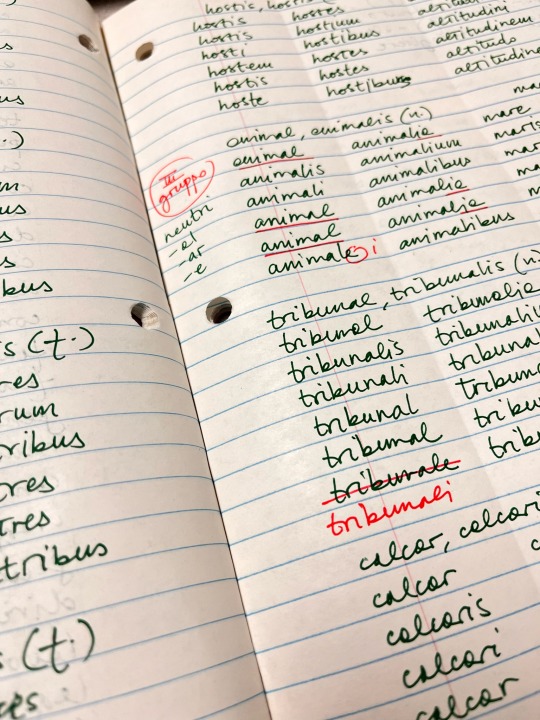 us
.)
us
bus
s (f.)
res
rum
ribus
cres
tres
tribus
s. (f.)
hostis,
hostis hostes
hostis hostium
hosti hostibus
hostem hostes
hostis hostes
hoste hostibus
altitudini
altitudinem
altitudo
altitudine
III gruppo
neutri
-al
-ar
-e
animal, animalis (n.)
animal animalia
animalis animalium
animali animalibus
animal animalia
animal animalia
animale i animalibus
mare
maris
tribunal, tribunalis (n.)
tribunal tribunalia
tribunalis
tribunali
tribunal
tribunal
tribunale
tribunali
calcar, calcari
calcar
calcaris
calcari
calcar